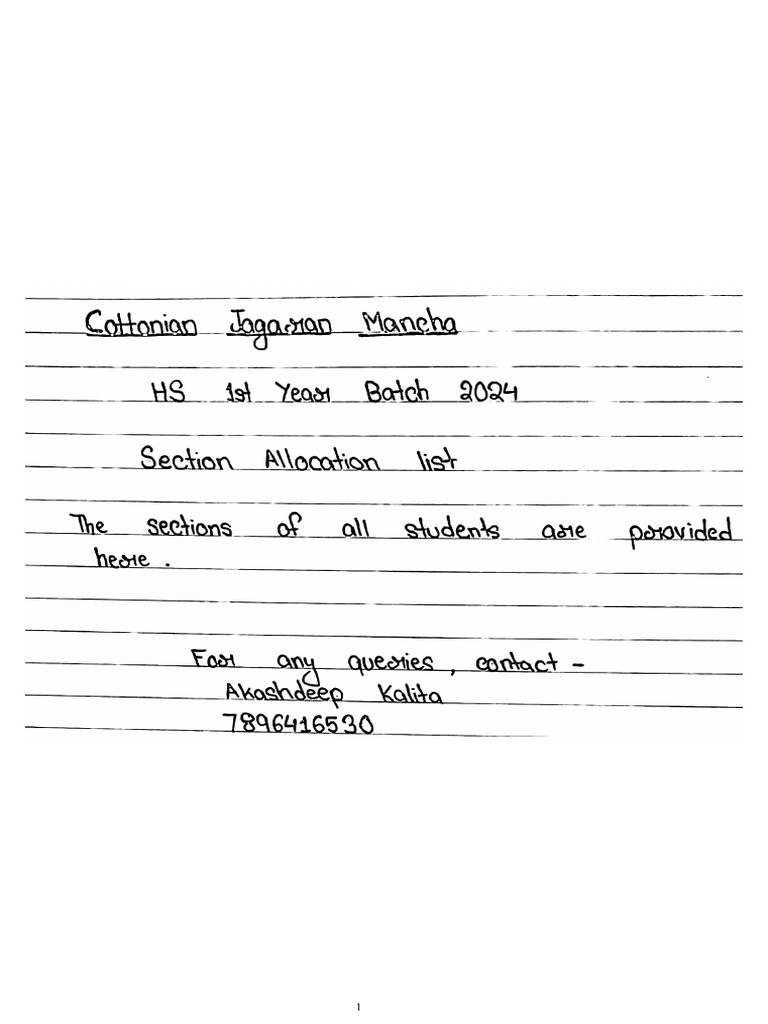 Cottonian Jagaran Mancha
HS 1st Year Batch 2024
Section Allocation list
The sections of all students are provided
here.
For any queries, contact -
Akashdeep Kalita
7896416530
1